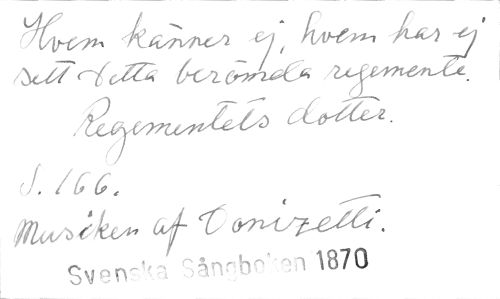 Hvem känner ej, hvem har ej
sett detta berömda regemente.
Regementets dotter.
S. 166.
Musiken af Donizetti.
Svenska Sångboken 1870